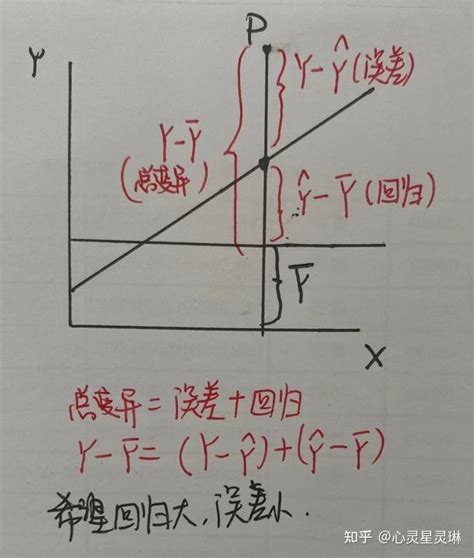 P
Y
Y-Ŷ(误差)
Y-Ȳ
(总变异)
Ŷ-Ȳ(回归)
Ȳ
X
总变异=误差+回归
Y-Ȳ=(Y-Ŷ)+(Ŷ-Ȳ)
希望回归大,误差小.
知乎 @心灵星灵琳